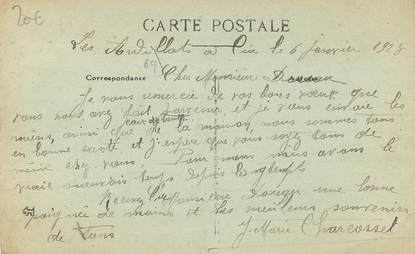 20€
CARTE POSTALE
Les Ardillats à Cie le 6 janvier 1928
69
Correspondance
Cher Monsieur
Je vous remercie de vos bons vœux que
vous nous avez fait parvenir et je vous envoie les
miens, ainsi que de la maison, nous sommes tous
en bonne santé et j'espère que vous soyez tous de
même chez vous. Pour nous nous avons le
vrai mauvais temps depuis longtemps
Recevez Monsieur une bonne
poignée de mains et les meilleurs souvenirs
de tous
J. Marie Charcosset